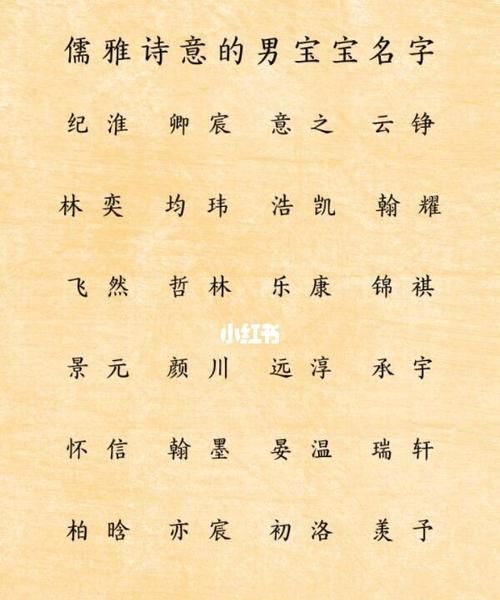 儒雅诗意的男宝宝名字
纪淮 卿宸 意之 云铮
林奕 均玮 浩凯 翰耀
飞然 哲林 乐康 锦祺
小红书
景元 颜川 远淳 承宇
怀信 翰墨 晏温 瑞轩
柏晗 亦宸 初洛 羡予